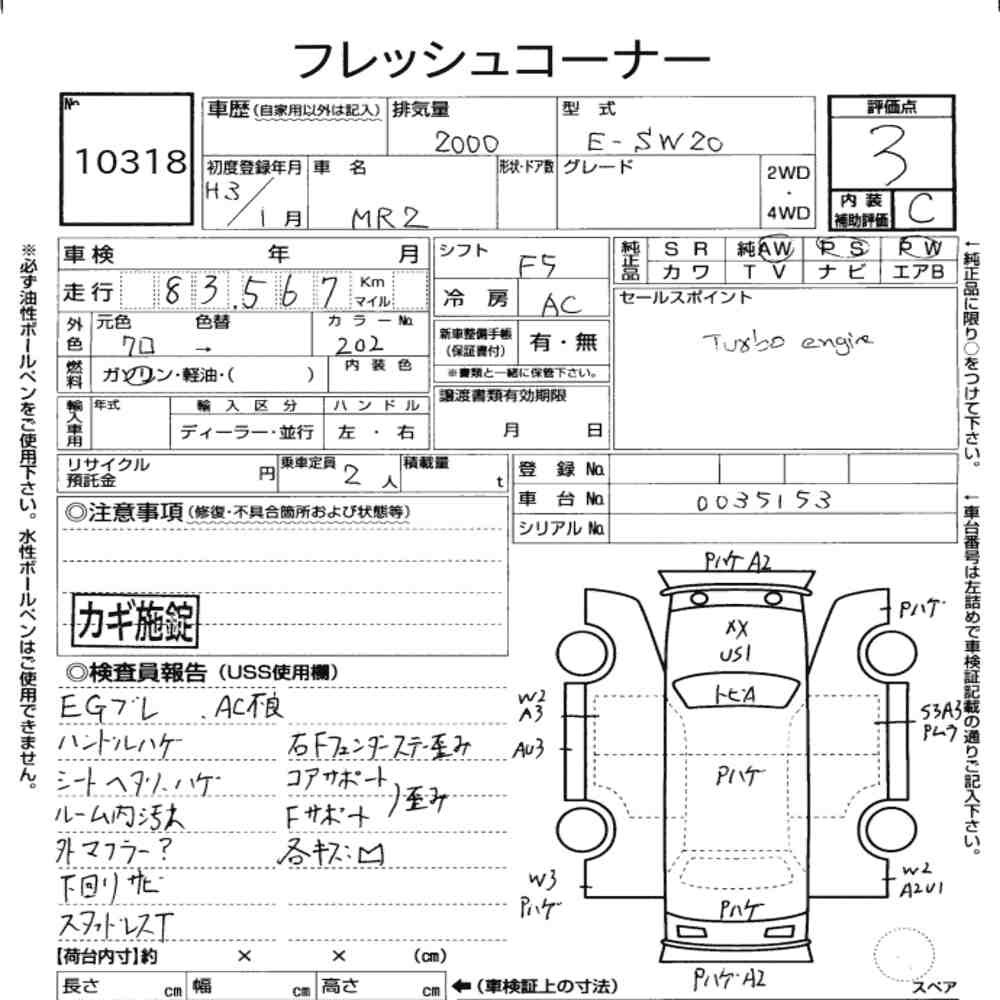 フレッシュコーナー
No.
10318
車歴(自家用以外は記入)
排気量
2000
型 式
E-SW20
評価点
3
初度登録年月
H3/1月
車 名
MR2
形状・ドア数
グレード
2WD
・
4WD
内 装
補助評価
C
車 検 年 月
走行 83,567 Km マイル
外色
元色 クロ
色替 →
カラーNo. 202
燃料
ガソリン・軽油・( )
内 装 色
輸入車用
年式
輸 入 区 分
ディーラー・並行
ハ ン ド ル
左 ・ 右
シフト
F5
冷 房
AC
新車整備手帳
(保証書付)
有・無
※書類と一緒に保管下さい。
譲渡書類有効期限
月 日
純正品
S R 純AW P S P W
カ ワ T V ナ ビ エアB
セールスポイント
Turbo engine
リサイクル
預託金
円
乗車定員 2 人
積載量
t
登 録 No.
車 台 No. 0035153
シリアル No.
◎注意事項(修復・不具合箇所および状態等)
カギ施錠
◎検査員報告(USS使用欄)
EGブレ . AC不良
ハンドルハゲ
右Fフェンダーステー歪み
シートヘタリ、ハゲ
コアサポート
ルーム内汚れ
Fサポート
)歪み
外マフラー?
各キズ:凹
下回りサビ
スタッドレスT
【荷台内寸】約 × × (cm)
長さ cm 幅 cm 高さ cm
←(車検証上の寸法)
PハゲA2
Pハゲ
XX
US1
トビA
W2
A3
AU3
S3A3
Pムラ
Pハゲ
W3
Pハゲ
W2
A2U1
Pハゲ
Pハゲ・A2
スペア
※必ず油性ボールペンをご使用下さい。水性ボールペンはご使用できません。
←純正品に限り○をつけて下さい。
←車台番号は左詰めで車検証記載の通りご記入下さい。